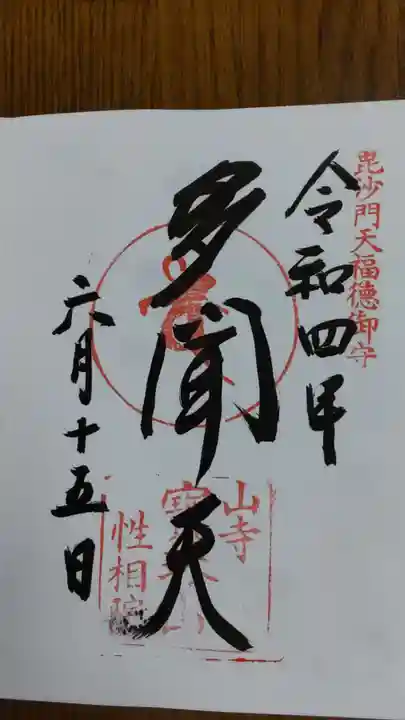 毘沙門天福徳御守
令和四年
多聞天
山寺
寳珠山
性相院
六月十五日